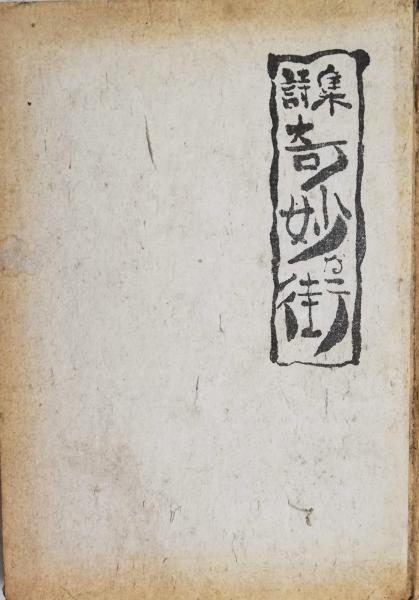 詩集
奇妙な街